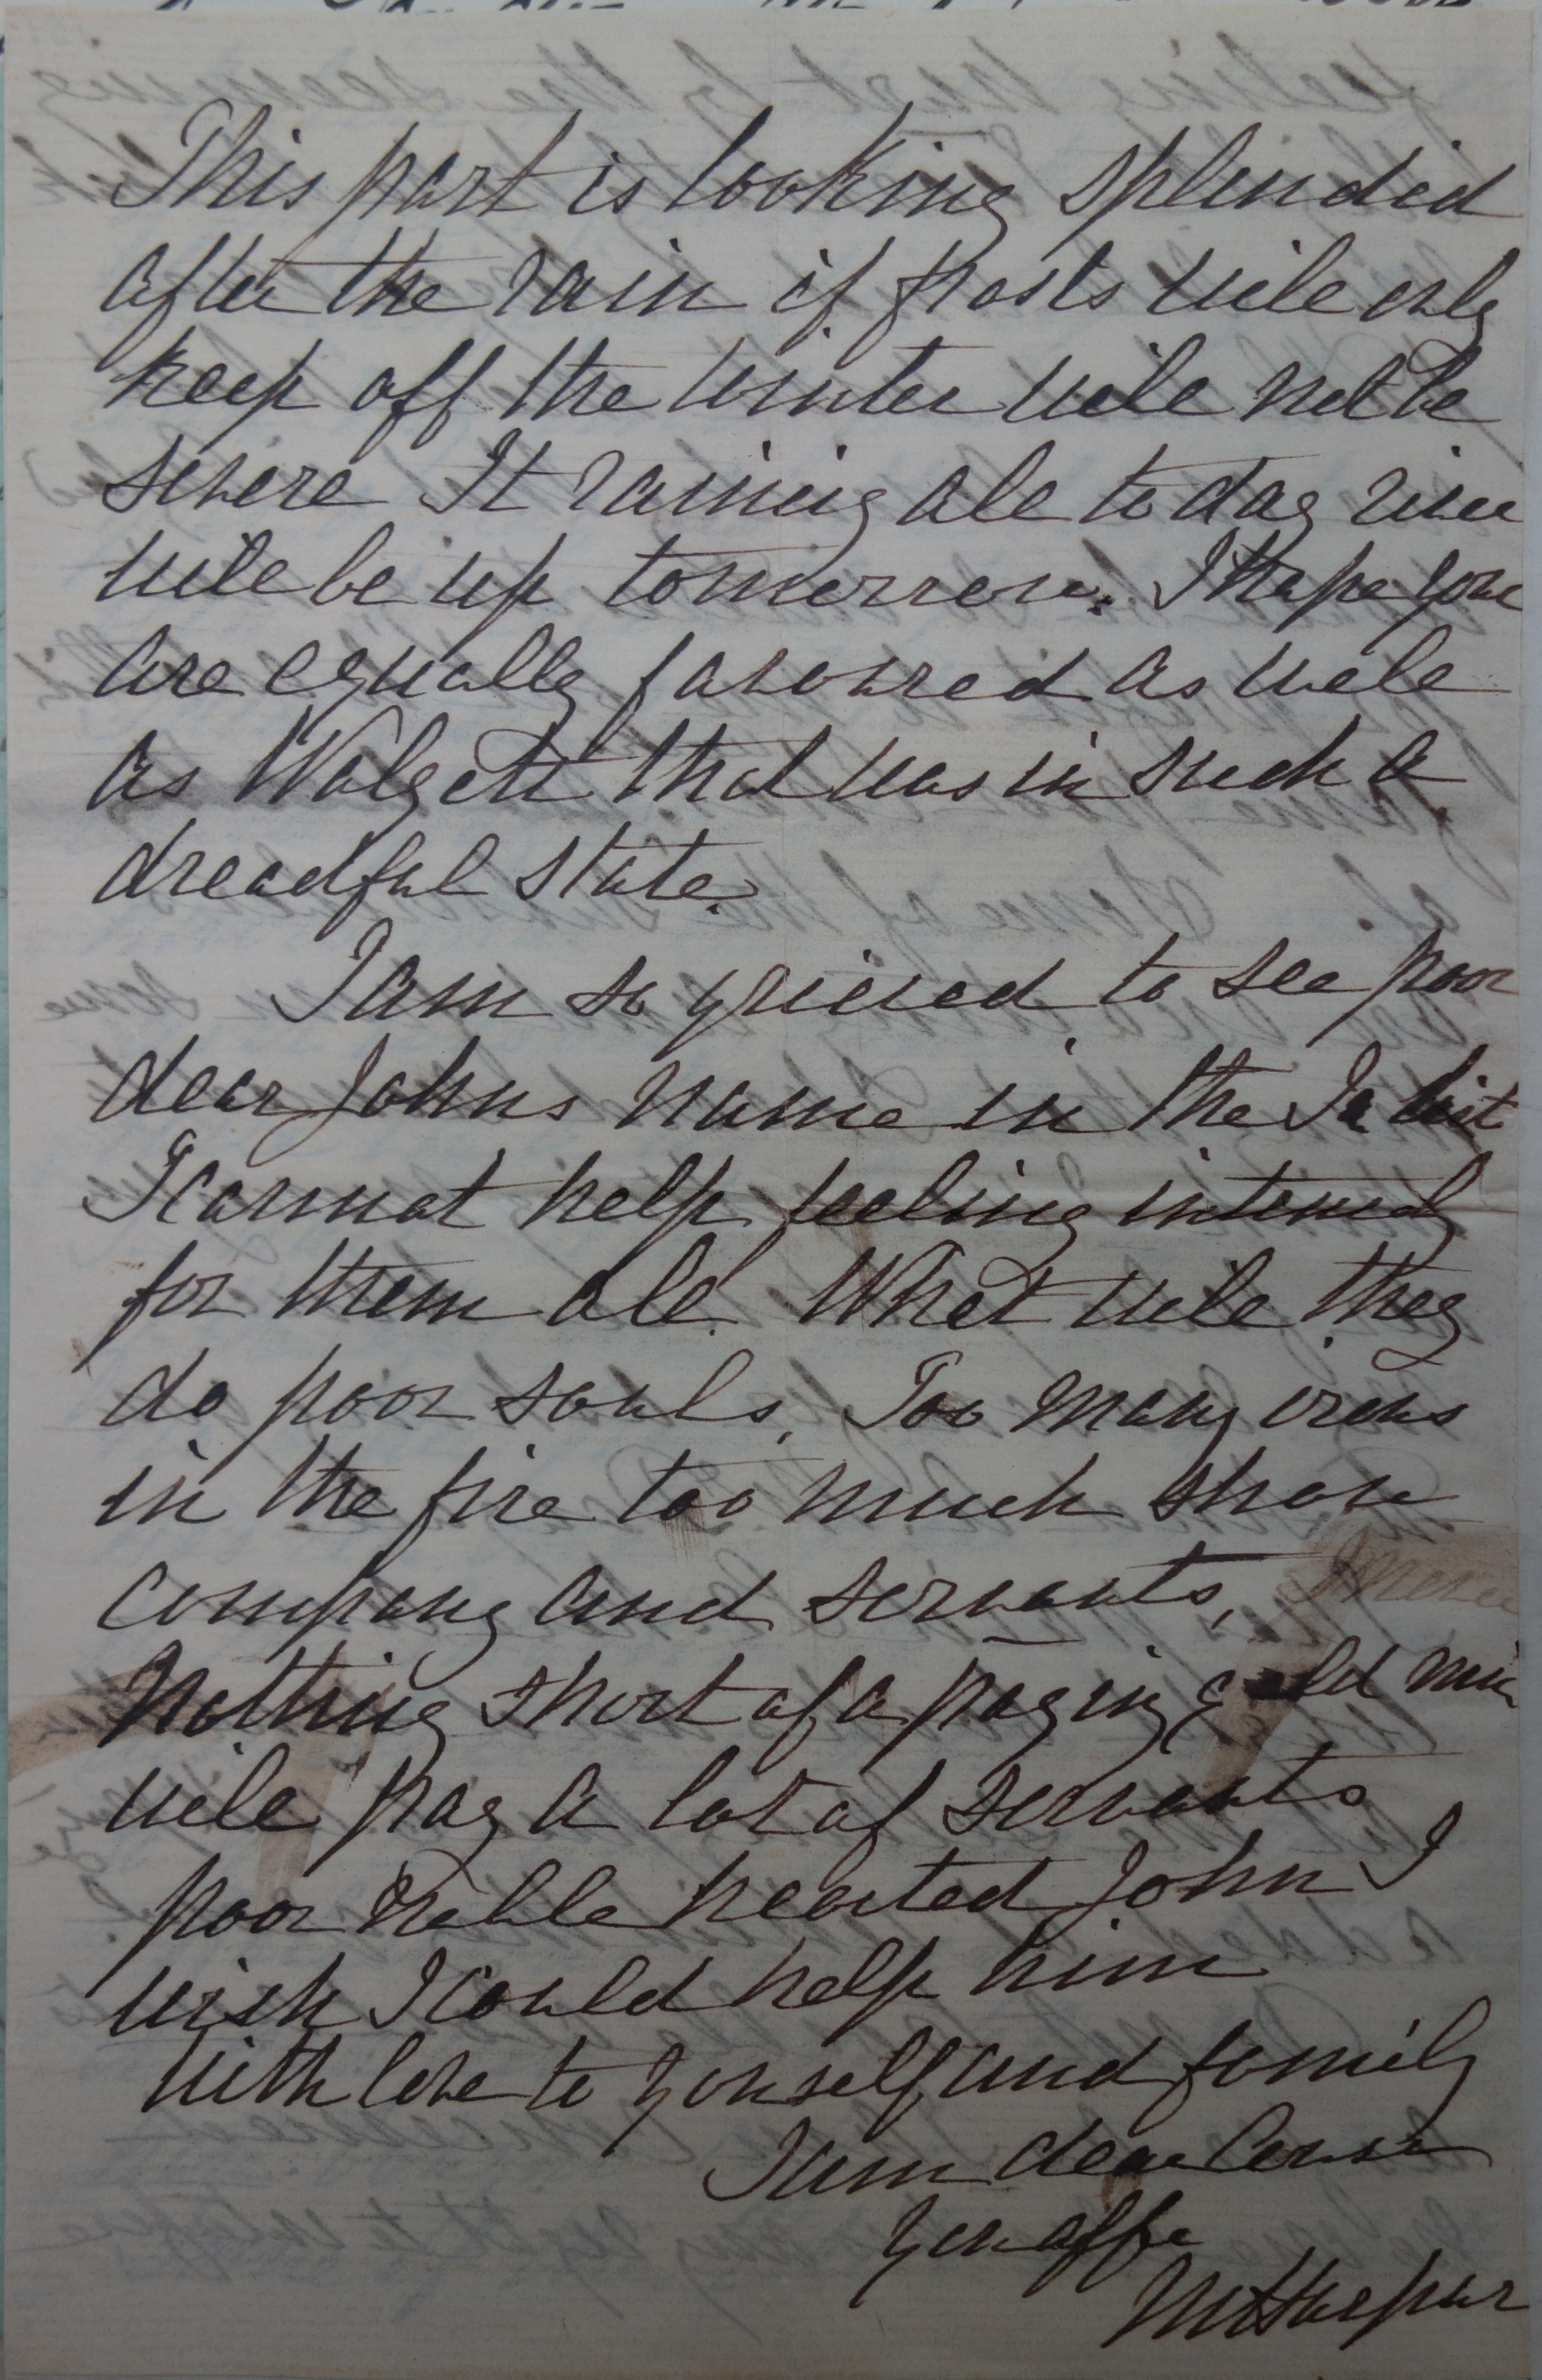 This part is looking splendid
after the rain if frosts will only
keep off the winter will not be
severe It raining all to day river
will be up tomorrow. I hope you
are equally favoured as well
as Walgett that was in such a
dreadful state.
I am so grieved to see poor
dear Johns name in the list
I cannot help feeling intensely
for them all. What will they
do poor souls, Too many irons
in the fire too much show
company and servants,
Nothing short of a paying gold mine
will pay a lot of servants
poor noble hearted John I
wish I could help him
with love to yourself and family
I am dear
your affe